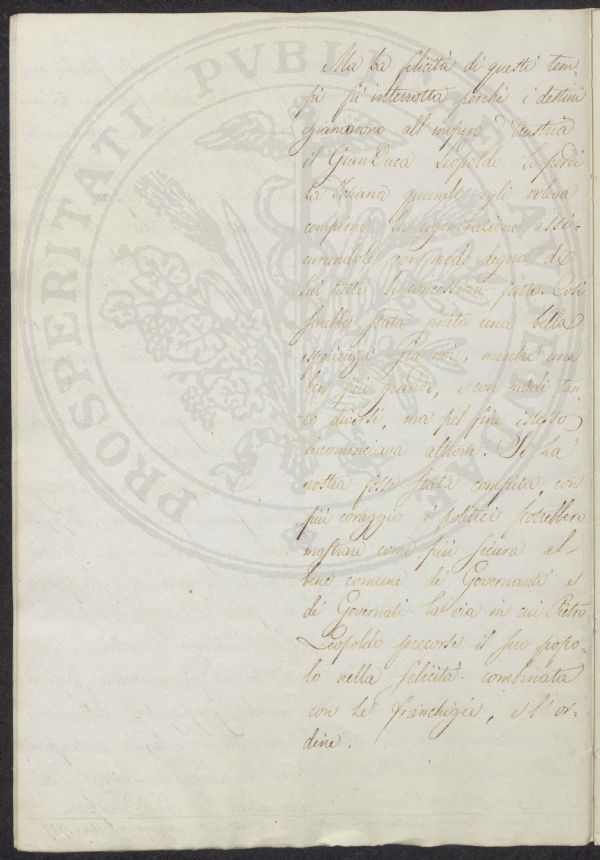 Ma la felicità di questi tem-
pi fu interrotta perchè i destini
chiamarono all' impero d' Austria
il GranDuca Leopoldo. Lo perdè
la Toscana quando egli voleva
compirne la rigenerazione assi-
curandole con modo degno di
lui tutte le concessioni fatte. Così
sarebbe stata finita una bella
esperienza fra noi, mentre una
ben più grande, e con modi tan-
to diversi, ma pel fine istesso
ricominciava altrove. Se la
nostra fosse stata compita, con
più coraggio i politici potrebbero
mostrare come più sicura al
bene comune de' Governanti e
di Governati la via in cui Pietro
Leopoldo precorse il suo popo-
lo nella felicità combinata
con le franchigie, e l' or-
dine.
PROSPERITATI PVBLICAE AVGENDAE